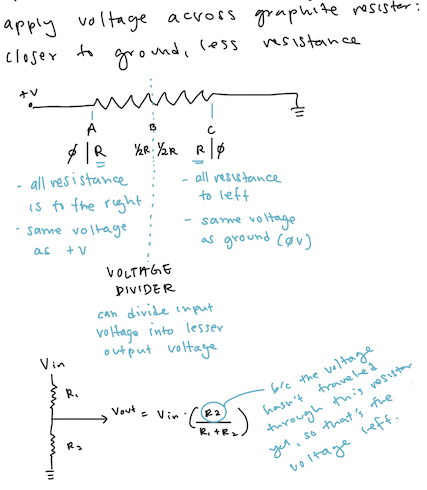 apply voltage across graphite resister:
closer to ground, less resistance
+V
A B C
∅ | R ½R ½R R | ∅
- all resistance
is to the right
- same voltage
as +V
- all resistance
to left
- same voltage
as ground (∅V)
VOLTAGE
DIVIDER
can divide input
voltage into lesser
output voltage
Vin
R1
R2
Vout = Vin · (R2 / R1 + R2)
b/c the voltage
hasn't traveled
through this resistor
yet, so that's the
voltage left.